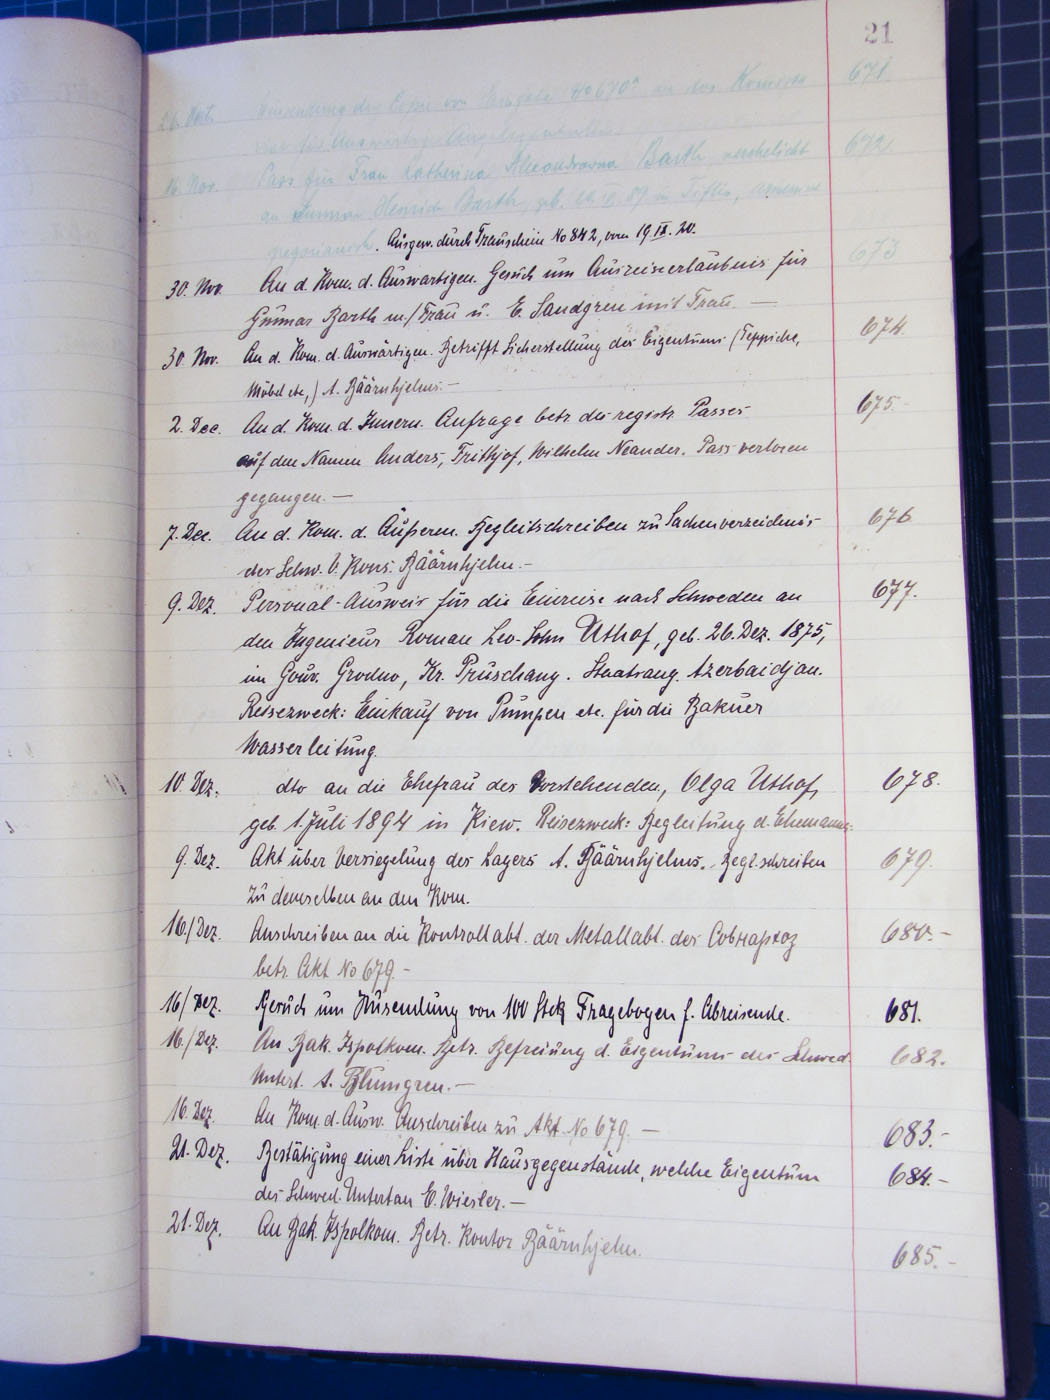 21
26. Okt. Einsendung der Copie von Eingabe No 670ª an das Kommissa- 671
riat für Auswärtige Angelegenheiten
16. Nov. Pass für Frau Katherina Alexandrowna Barth, verehelicht 672
an Gunnar Henrich Barth, geb. in Tiflis, armeno
gregorianisch. Ausgew. durch Trauschein No 842, vom 19 IX. 20.
30. Nov. An d. Kom. d. Auswärtigen. Gesuch um Ausreiseerlaubnis für 673
Gunnar Barth m./Frau u. E. Sandgren mit Frau. —
30. Nov. An d. Kom. d. Auswärtigen. Betrifft Sicherstellung des Eigentums (Teppiche, 674.
Möbel etc,) A. Bäärnhjelms. —
2. Dec. An d. Kom. d. Innern. Anfrage betr. des registr. Passes 675.-
auf den Namen Anders, Frithjof, Wilhelm Neander. Pass verloren
gegangen. —
7. Dec. An d. Kom. d. Äußeren. Begleitschreiben zu Sachenverzeichnis 676
des Schw. V. Kons. Bäärnhjelm. -
9. Dez. Personal-Ausweis für die Einreise nach Schweden an 677.
den Ingenieur Roman Leo-Sohn Uthof, geb. 26. Dez. 1875,
im Gouv. Grodno, Kr. Pruschany. Staatsang. Azerbaidjan.
Reisezweck: Einkauf von Pumpen etc. für die Bakuer
Wasserleitung.
10. Dez. dto an die Ehefrau des Vorstehenden, Olga Uthof, 678.
geb. 1. Juli 1894 in Kiew. Reisezweck: Begleitung d. Ehemannes.
9. Dez. Akt über Versiegelung des Lagers A. Bäärnhjelms. Begl.schreiben 679.
zu demselben an den Kom.
16./Dez. Anschreiben an die Kontrollabt. der Metallabt. des Совнархоз 680.-
betr. Akt No 679. -
16/Dez. Gesuch um Zusendung von 100 Stck Fragebogen f. Abreisende. 681.
16./Dez. An Bak. Ispolkom. Betr. Befreiung d. Eigentums des Schwed. 682.
Untert. A. Blumgren. —
16. Dez. An Kom. d. Ausw. Anschreiben zu Akt No 679. — 683.-
21. Dez. Bestätigung einer Liste über Hausgegenstände, welche Eigentum 684.-
des Schwed. Untertan E. Wiesler. —
21. Dez. An Bak. Ispolkom. Betr. Kontor Bäärnhjelm. 685.-